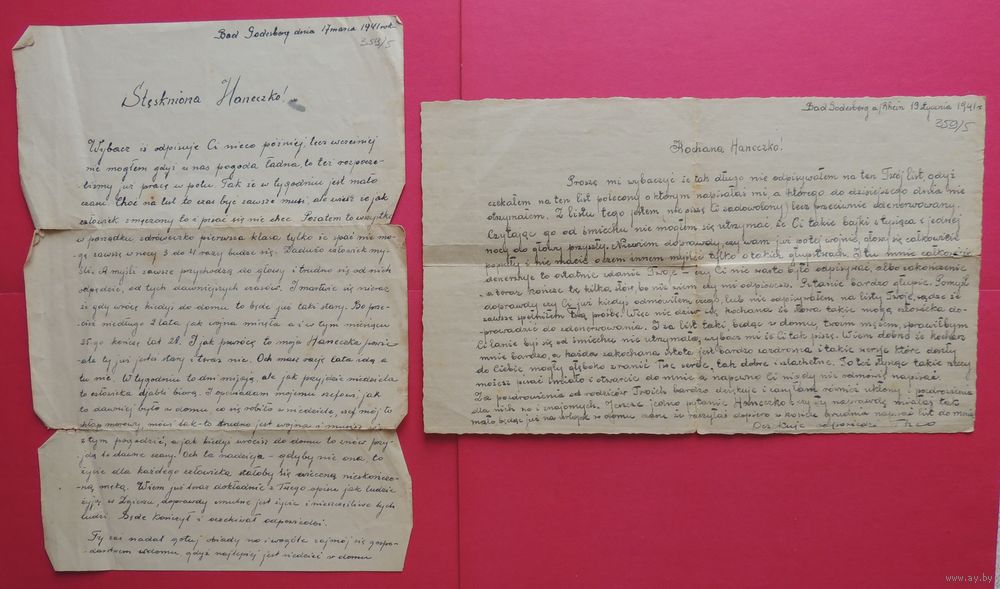 Bad Godesberg dnia 17 marca 1941 rok
359/5
Stęskniona Haneczko!
Wybacz iż odpisuję Ci nieco później, lecz wcześniej
nie mogłem gdyż u nas pogoda ładna to też rozpoczę-
liśmy już pracę w polu. Tak że w tygodniu jest mało
czasu. Choć na list to czas być zawsze musi, ale wiesz jak
człowiek zmęczony to i pisać się nie chce. Pozatem to wszystko
w porządku zdrówieczko pierwsza klasa tylko że spać nie mo-
gę zawsze w nocy 3 do 4 razy budzę się. Zadużo człowiek my-
śli. A myśli zawsze przychodzą do głowy i trudno się od nich
odpędzić, od tych dawniejszych czasów. I martwię się nieraz
że gdy wrócę kiedyś do domu to będę już taki stary. Bo prze-
cież niedługo 2 lata jak wojna minęła a i w tym miesiącu
25-go kończę lat 28. I jak powrócę to moja Haneczka powie
ale ty już jesteś stary i teraz nie. Och masz rację lata idą a
tu nic. W tygodniu to dni mijają, ale jak przyjdzie niedziela
to człowieka djabli biorą. I opowiadam mojemu szefowi jak
to dawniej było w domu, co się robiło w niedzielę,
chłop morowy, mówi tak to trudno jest wojna i musisz się
z tym pogodzić, a jak kiedyś wrócisz do domu to znów przy-
jdą te dawne czasy. Och ta nadzieja - gdyby nie ona to
życie dla każdego człowieka stałoby się wieczną nieskończo-
ną męką. Wiem już teraz dokładnie z Twego opisu jak ludzie
żyją w Zgierzu, doprawdy smutne jest życie i nieszczęśliwe tych
ludzi. Będę kończył i oczekiwał odpowiedzi.
Ty zaś nadal gotuj obiady no i wogóle zajmuj się gospo-
darstwem w domu, gdyż najlepiej jest siedzieć w domu
Bad Godesberg a/Rhein 19 stycznia 1941 r
359/5
Kochana Haneczko!
Proszę mi wybaczyć że tak długo nie odpisywałem na ten Twój list, gdyż
czekałem na ten list polecony o którym napisałaś mi a którego do dzisiejszego dnia nie
otrzymałem. Z listu tego jestem nie zadowolony, lecz przeciwnie zdenerwowany.
Czytając go od śmiechu nie mogłem się utrzymać, że Ci takie bajki z tysiąca i jednej
nocy do głowy przyszły. Niewiem doprawdy, czy wam już od tej wojny głowy się całkowicie
popsuły i nie macie o czem innem myśleć tylko o takich głupstwach. I tu mnie całkowicie
denerwuje to ostatnie zdanie Twoje - czy Ci nie warto było odpisywać, albo zakończenie
a teraz kończę tę kilka słów bo nie wiem czy mi odpiszesz. Pytanie bardzo głupie. Pomyśl
doprawdy czy Ci już kiedyś odmówiłem czego, lub nie odpisywałem na listy Twoje, sądzę że
zawsze spełniłem Twą prośbę. Więc nie dziw się kochana że słowa takie mogą człowieka do-
prowadzić do zdenerwowania. I za list taki będąc w domu twoim mężem, sprawiłbym
Ci lanie byś się od śmiechu nie utrzymała, wybacz mi że Ci tak piszę. Wiem dobrze że kochasz
mnie bardzo, a każda zakochana istota jest bardzo zazdrosna i takie wersje które doszły
do Ciebie mogły głęboko zranić Twe serce, tak dobre i szlachetne. Zatem
możesz pisać śmiało i otwarcie do mnie a napewno Ci nigdy nie odmówię napisać.
Za pozdrowienia od rodziców Twoich bardzo dziękuję i zasyłam również ukłony i pozdrowienia
dla nich no i znajomych. Jeszcze jedno pytanie Haneczko czy naprawdę miałaś tak
mało będąc już na urlopie w domu, że zaczęłaś dopiero w końcu grudnia napisać list do mnie
Oczekuję odpowiedzi Theo
www.ay.by